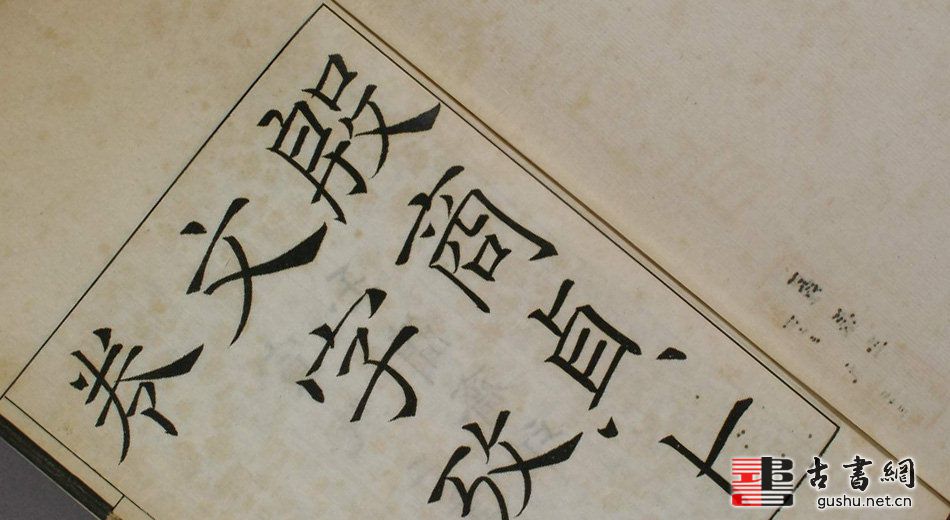 殷商貞卜
文字攷
古書網
gushu.net.cn